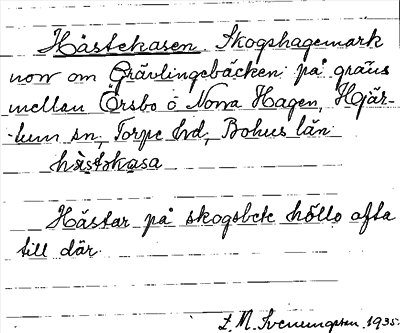 Hästekasen. Skogshagemark
norr om Grävlingebäcken på gräns
mellan Örsbo o Norra Hagen, Hjär-
tum sn, Torpe hd, Bohus län
hästskasa
Hästar på skogsbete höllo ofta
till där.
1935.